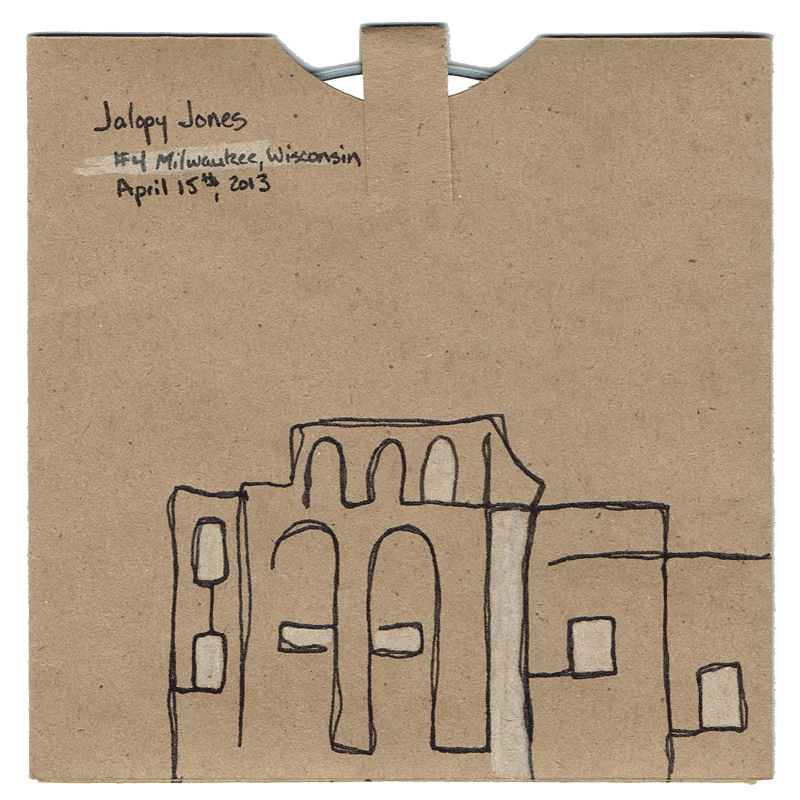 Jalopy Jones
#4 Milwaukee, Wisconsin
April 15th, 2013